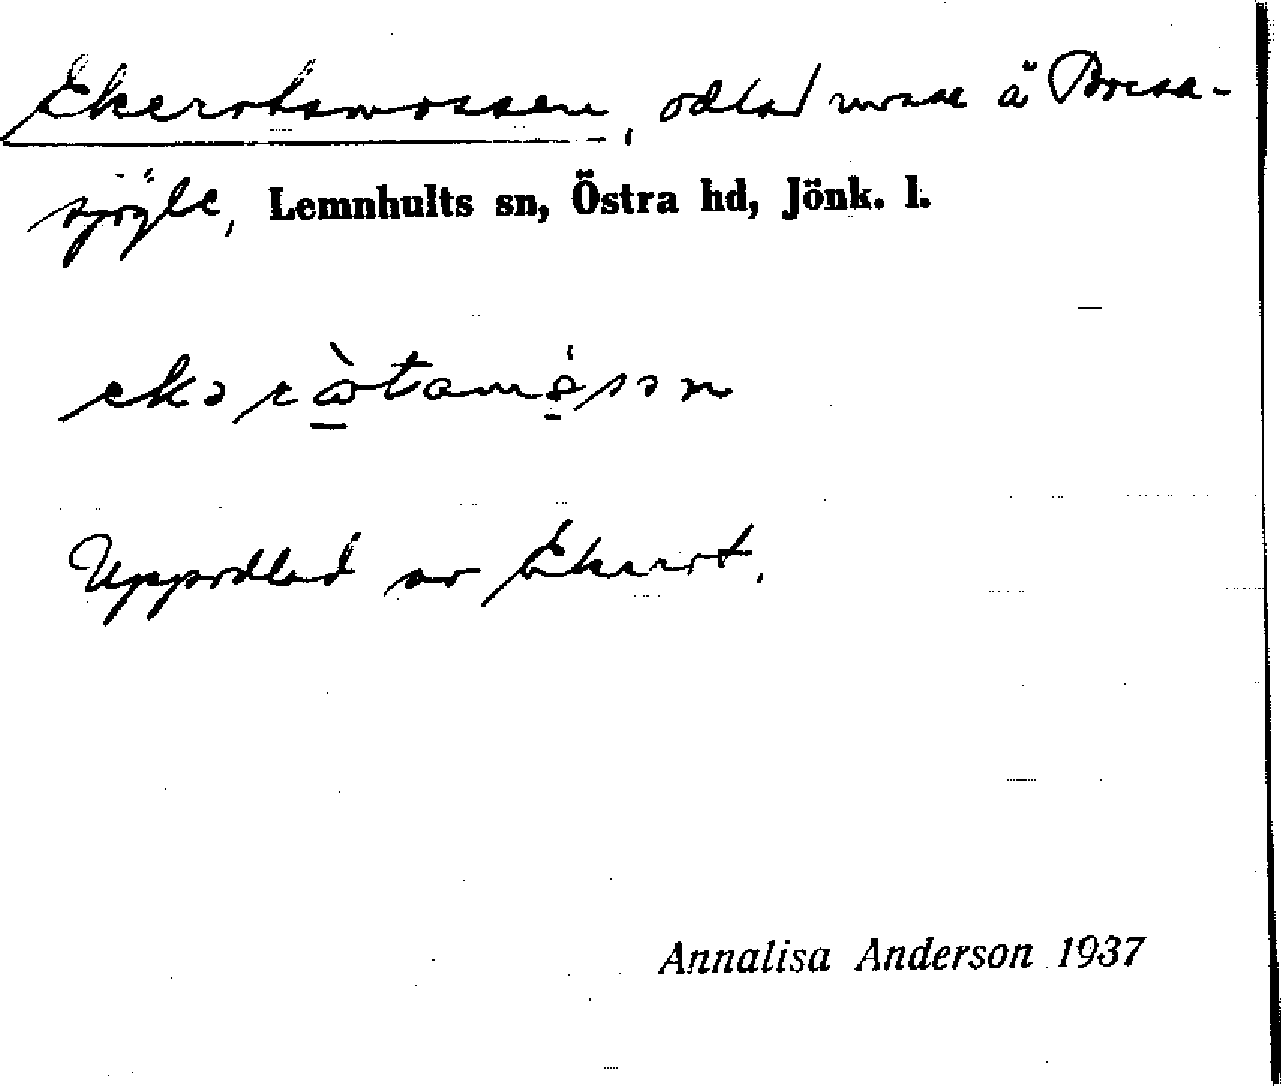 Ekerotsmossen, odlad mosse å Bresa-
sjöyle, Lemnhults sn, Östra hd, Jönk. l.
Uppodlad av Ekerot.
Annalisa Anderson 1937